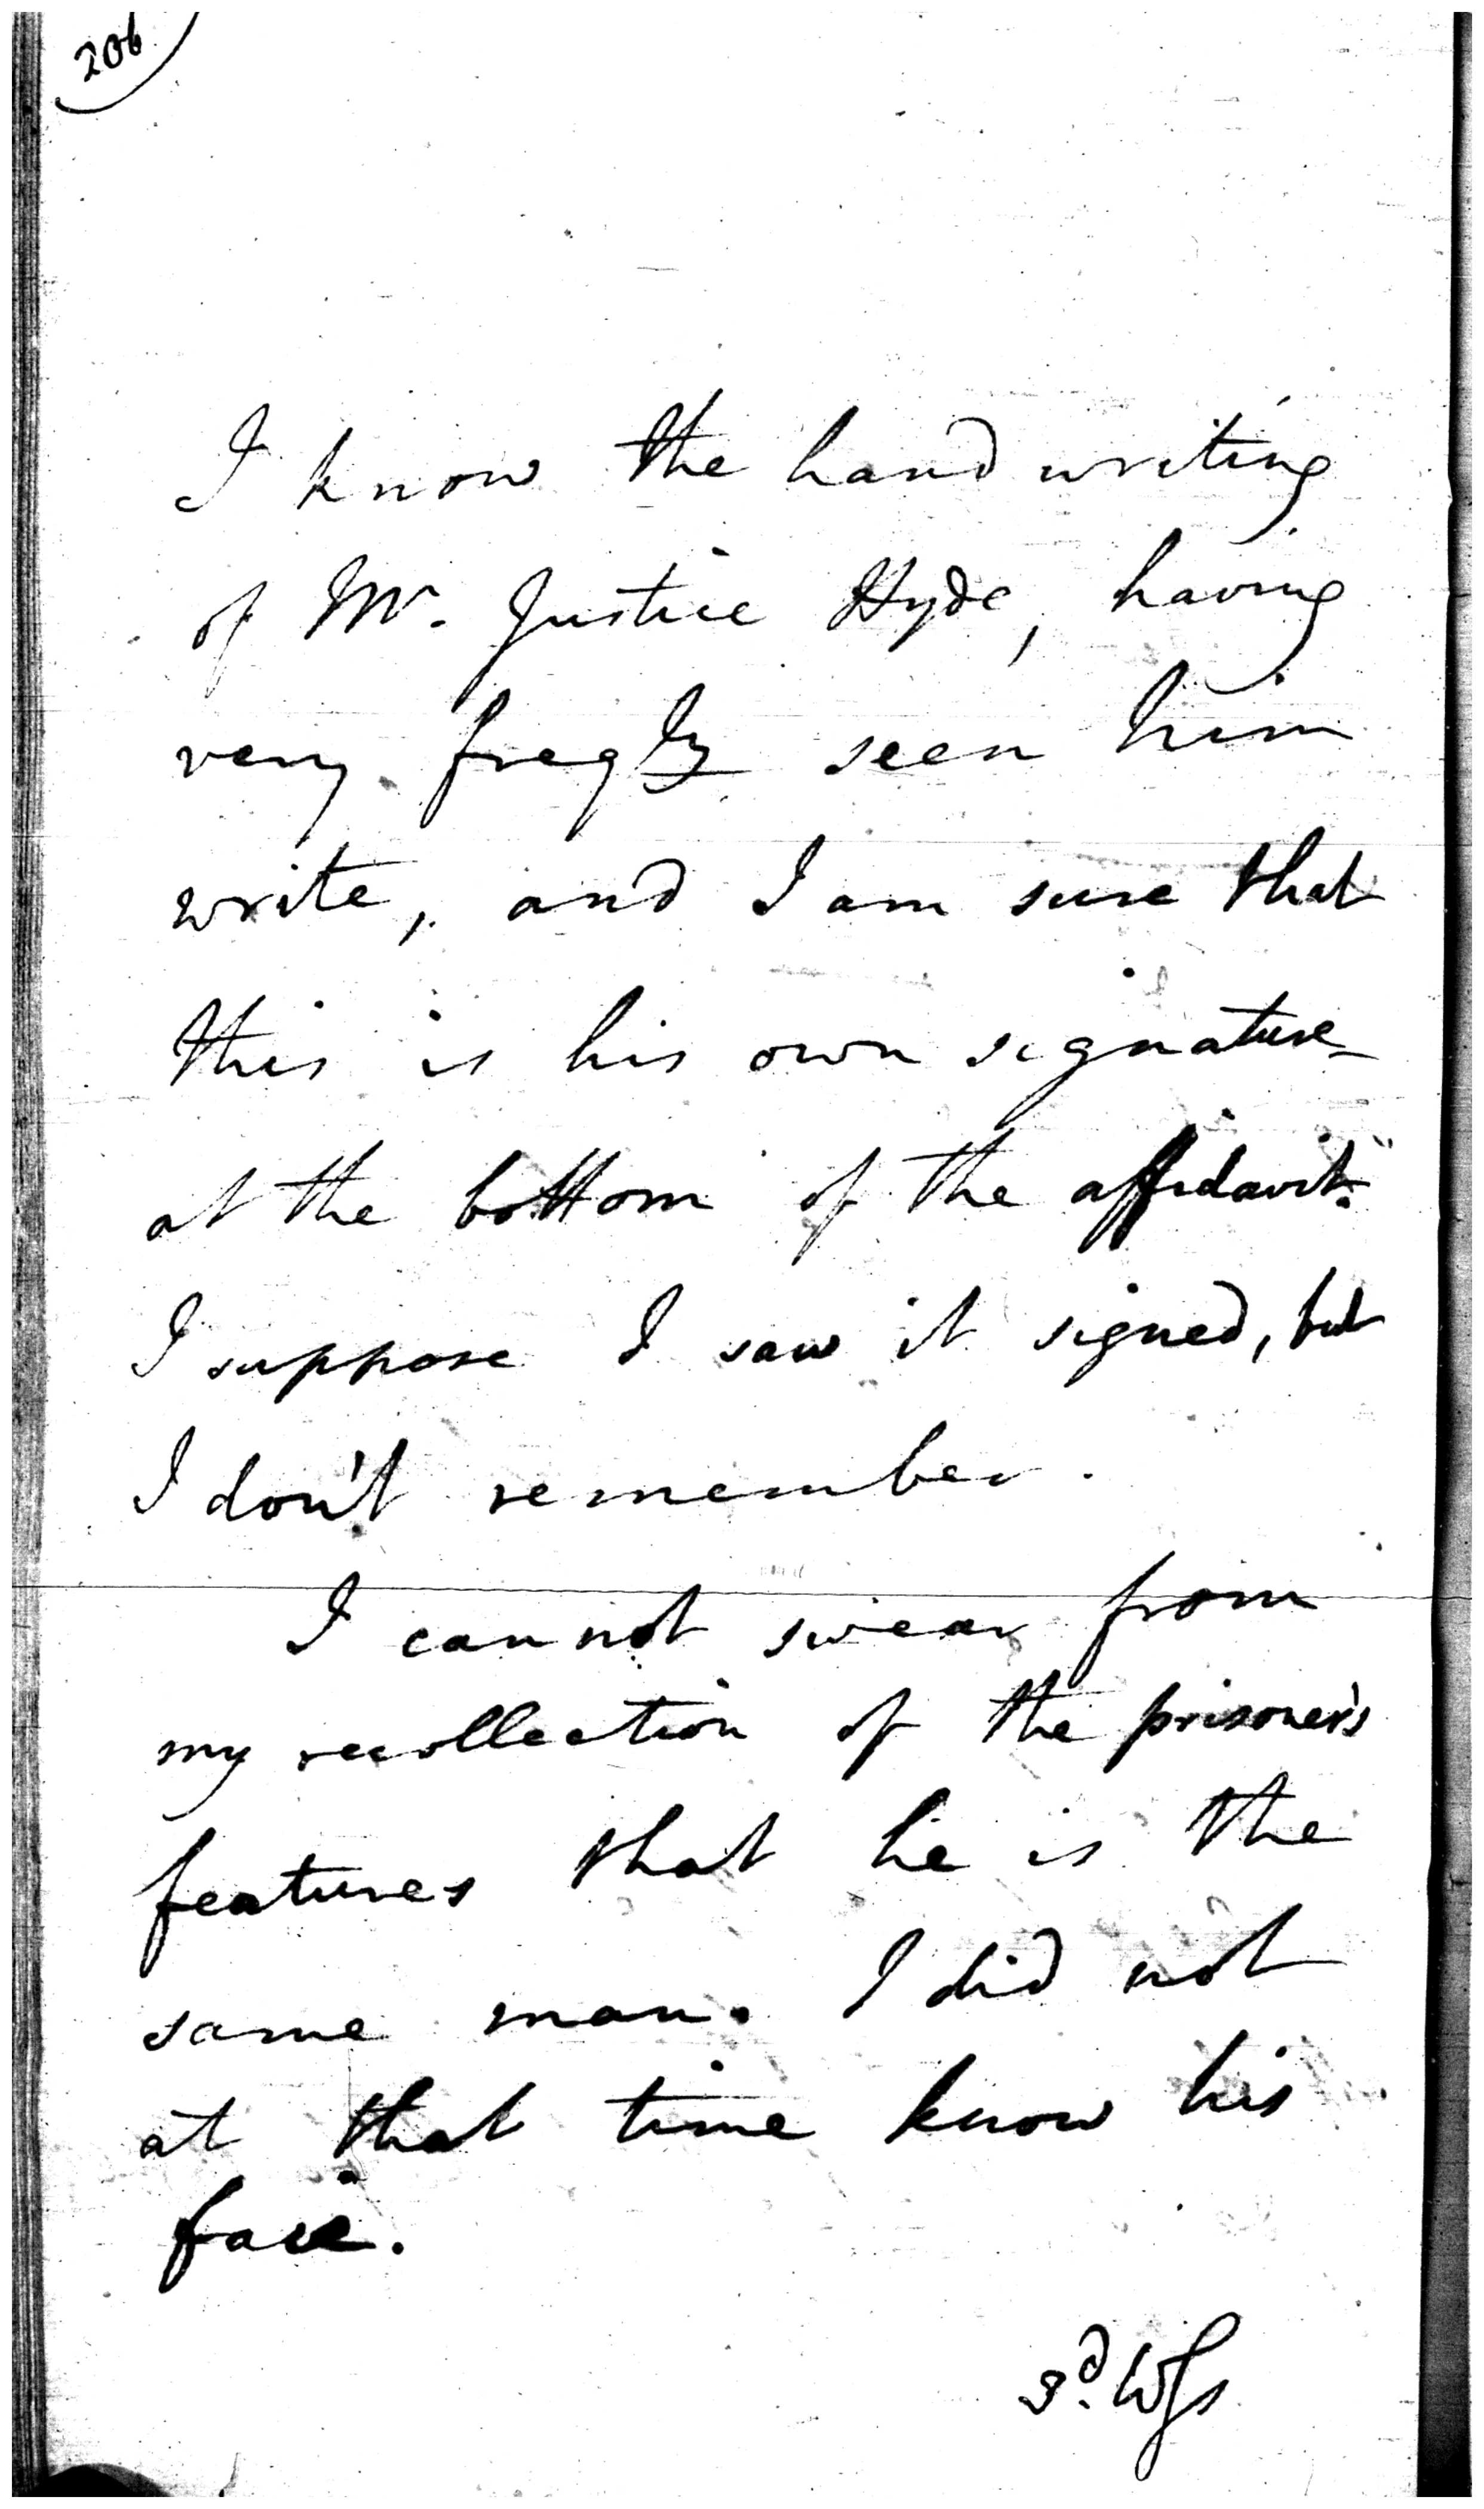 206
I know the hand writing
of Mr. Justice Hyde, having
very freqly seen him
write, and I am sure that
this is his own signature
at the bottom of the affidavit.
I suppose I saw it signed, but
I don't remember.
I cannot swear from
my recollection of the prisoner's
features that he is the
same man. I did not
at that time know his
face.
3d. Ws